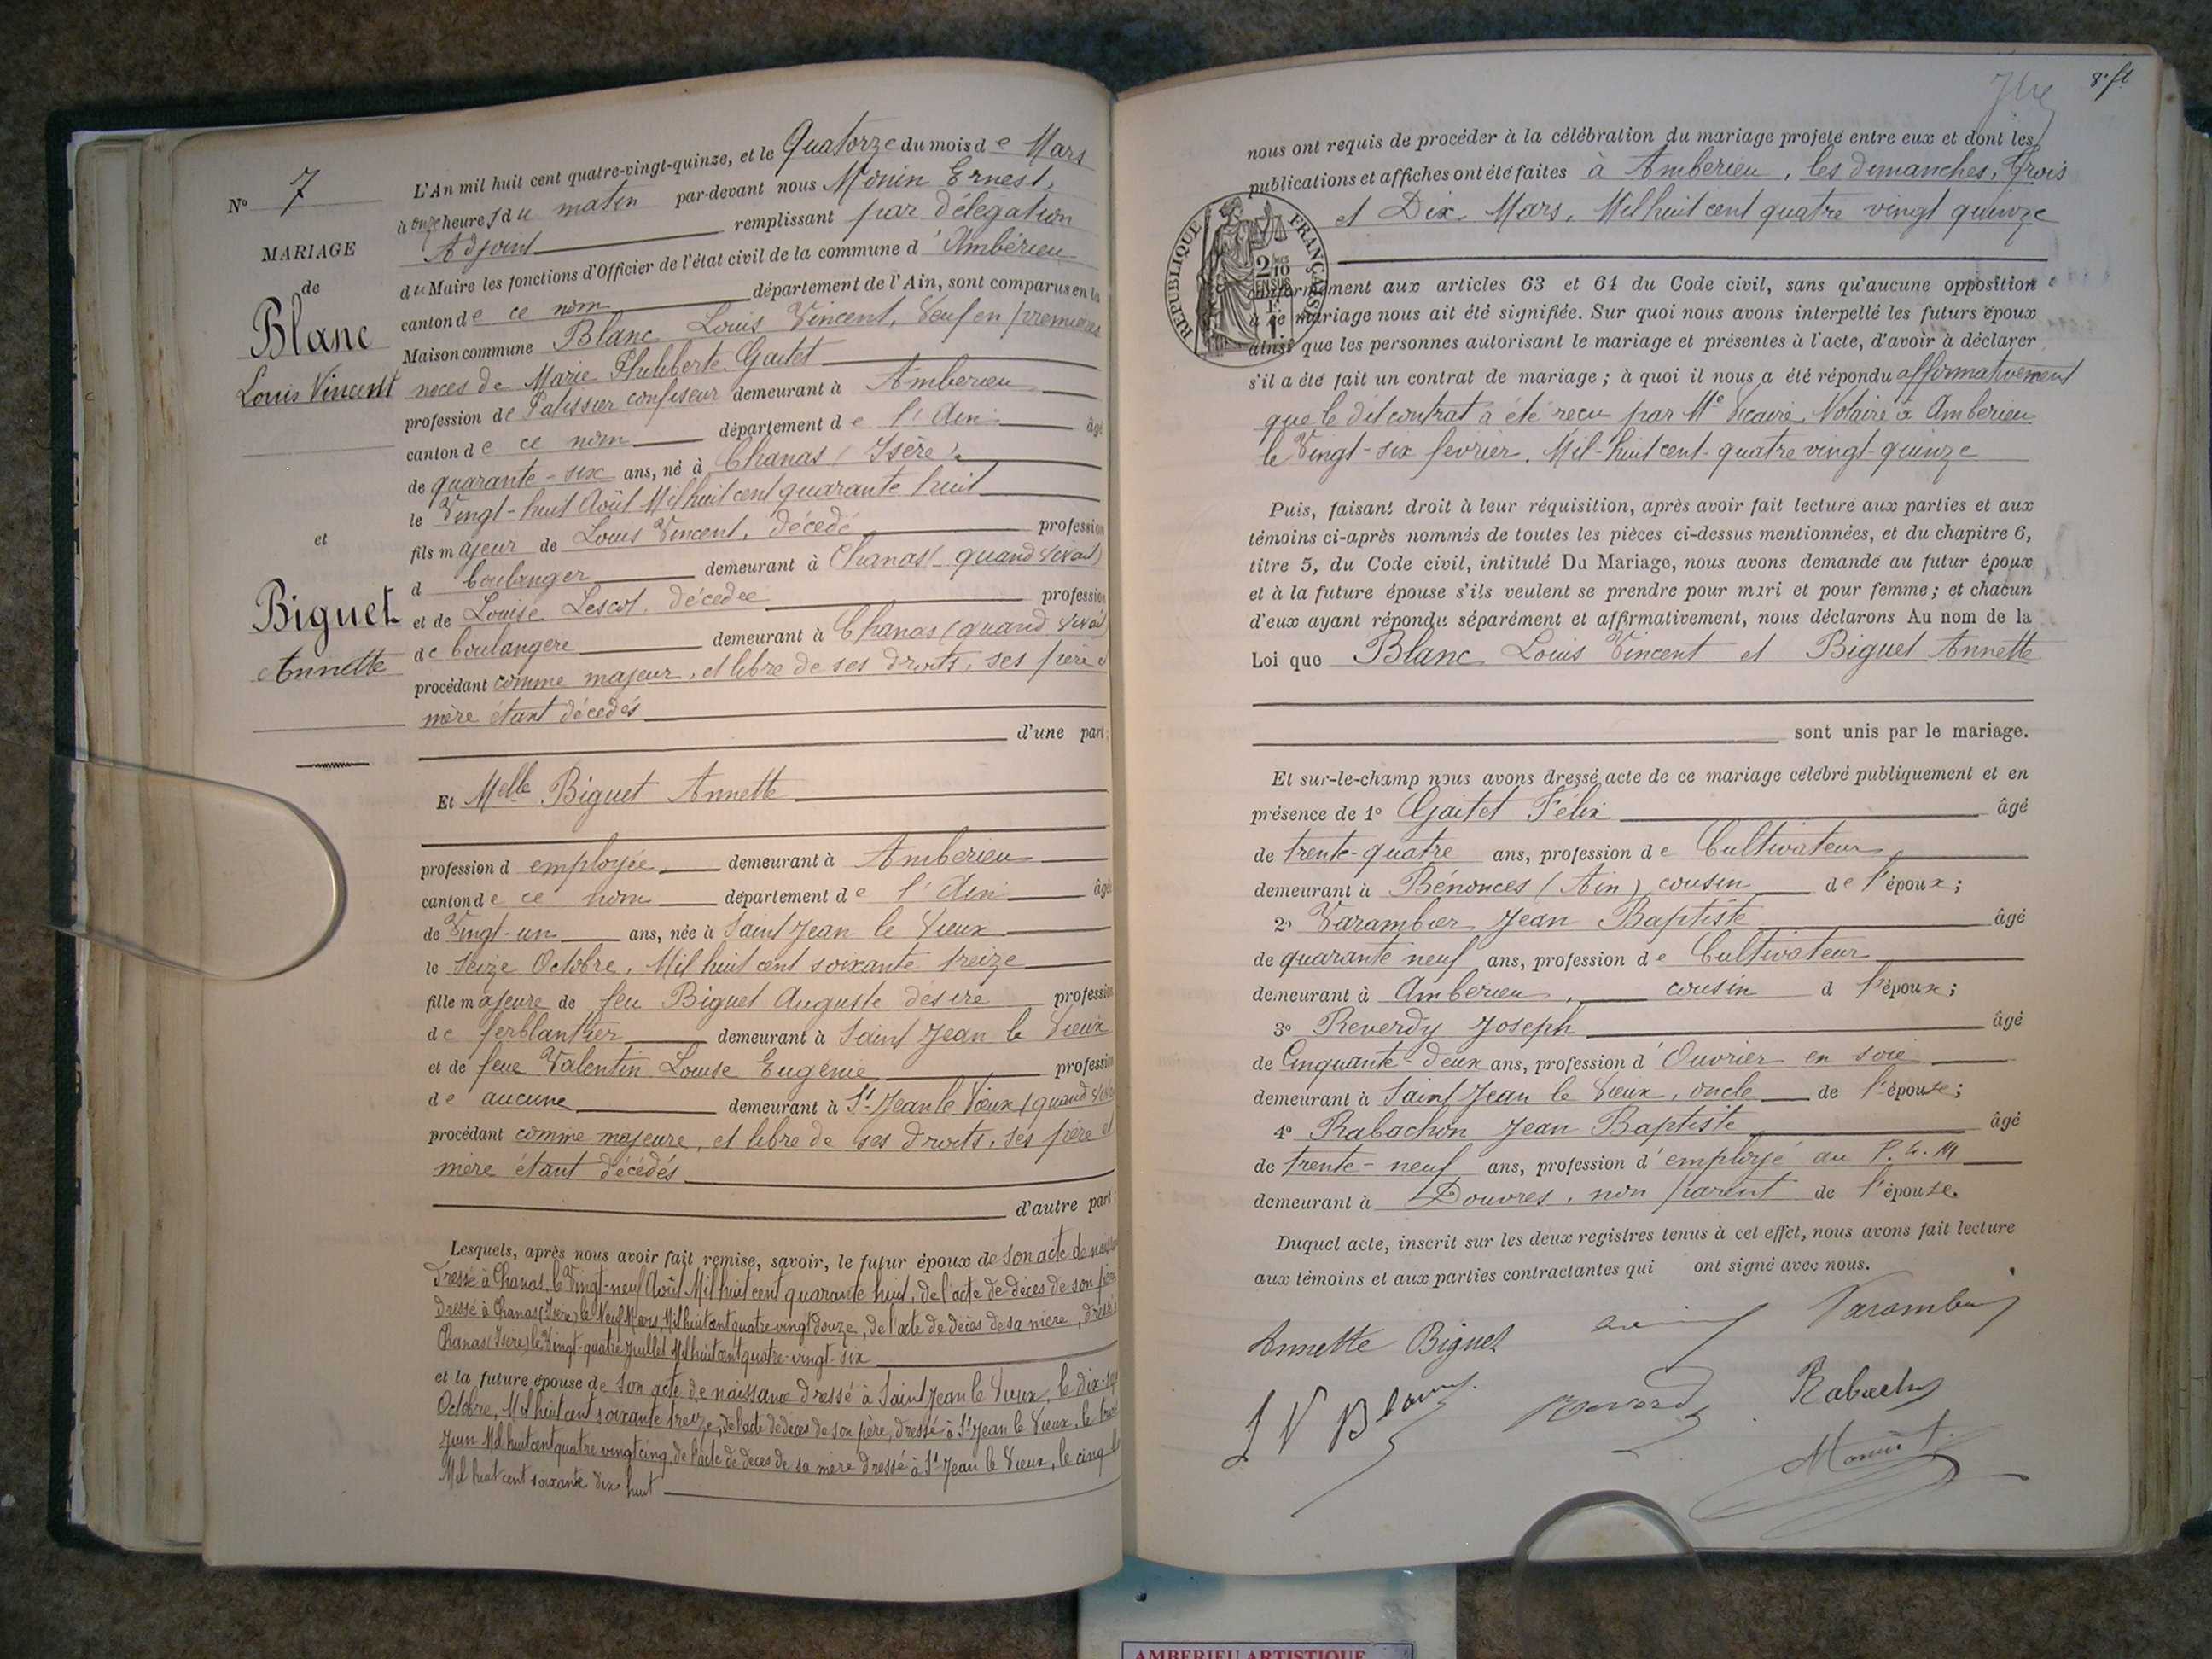 N° 7
MARIAGE
de
Blanc
Louis Vincent
et
Biguet
Annette
L'An mil huit cent quatre-vingt-quinze, et le Quatorze du mois de Mars
à onze heures du matin par-devant nous Monin Ernest,
Adjoint remplissant par délégation
du Maire les fonctions d'Officier de l'état civil de la commune d'Ambérieu
canton de ce nom département de l'Ain, sont comparus en la
Maison commune Blanc Louis Vincent, Veuf en premières
noces de Marie Philiberte Gaitet
profession de Patissier confiseur demeurant à Amberieu
canton de ce nom département de l'Ain âgé
de quarante-six ans, né à Chanas (Isère)
le Vingt-huit Août Mil huit cent quarante huit
fils majeur de Louis Vincent, décédé profession
d boulanger demeurant à Chanas (quand vivait)
et de Louise Lescot, décédée profession
de boulangere demeurant à Chanas (quand vivait)
procédant comme majeur, et libre de ses droits, ses père et
mère étant décédés
d'une part;
Et Melle Biguet Annette
profession d employée demeurant à Amberieu
canton de ce nom département de l'Ain âgée
de Vingt-un ans, née à Saint Jean le Vieux
le Seize Octobre, Mil huit cent soixante treize
fille majeure de feu Biguet Auguste désiré profession
de ferblantier demeurant à Saint Jean le Vieux
et de feue Valentin Louise Eugénie profession
de aucune demeurant à St Jean le Vieux (quand
procédant comme majeure, et libre de ses droits, ses père et
mère étant décédés
d'autre part
Lesquels, après nous avoir fait remise, savoir, le futur époux de son acte de
dressé à Chanas, le Vingt-neuf Août Mil huit cent quarante huit, de l'acte de décès de son père
dressé à Chanas (Isère) le Neuf Mars, Mil huit cent quatre vingt douze, de l'acte de décès de sa mère, dressé
Chanas (Isère) le Vingt-quatre Juillet Mil huit cent quatre-vingt-six
et la future épouse de son acte de naissance dressé à Saint Jean le Vieux, le dix-sept
Octobre, Mil huit cent soixante treize, de l'acte de décès de son père, dressé à St Jean le Vieux, le
Juin Mil huit cent quatre vingt cinq, de l'acte de décès de sa mère dressé à St Jean le Vieux, le cinq
Mil huit cent soixante dix huit
8e ft
nous ont requis de procéder à la célébration du mariage projeté entre eux et dont les
publications et affiches ont été faites à Amberieu, les dimanches, Trois
et Dix Mars, Mil huit cent quatre vingt quinze
RÉPUBLIQUE FRANÇAISE
2/10 EN SUS
conformément aux articles 63 et 64 du Code civil, sans qu'aucune opposition
à ce mariage nous ait été signifiée. Sur quoi nous avons interpellé les futurs époux
ainsi que les personnes autorisant le mariage et présentes à l'acte, d'avoir à déclarer
s'il a été fait un contrat de mariage; à quoi il nous a été répondu affirmativement
que le dit contrat a été reçu par Me Vicaire, Notaire à Amberieu
le Vingt-six février, Mil-huit cent-quatre vingt-quinze
Puis, faisant droit à leur réquisition, après avoir fait lecture aux parties et aux
témoins ci-après nommés de toutes les pièces ci-dessus mentionnées, et du chapitre 6,
titre 5, du Code civil, intitulé Du Mariage, nous avons demandé au futur époux
et à la future épouse s'ils veulent se prendre pour mari et pour femme; et chacun
d'eux ayant répondu séparément et affirmativement, nous déclarons Au nom de la
Loi que Blanc Louis Vincent et Biguet Annette
sont unis par le mariage.
Et sur-le-champ nous avons dressé acte de ce mariage célébré publiquement et en
présence de 1° Gaitet Félix âgé
de trente-quatre ans, profession de Cultivateur
demeurant à Bénonces (Ain), cousin de l'époux;
2° Varambier Jean Baptiste âgé
de quarante neuf ans, profession de Cultivateur
demeurant à Amberieu, cousin d l'époux;
3° Reverdy Joseph âgé
de Cinquante-deux ans, profession d'Ouvrier en soie
demeurant à Saint Jean le Vieux, oncle de l'épouse;
4° Rabachon Jean Baptiste âgé
de trente-neuf ans, profession d'employé au P. L. M
demeurant à Douvres, non parent de l'épouse.
Duquel acte, inscrit sur les deux registres tenus à cet effet, nous avons fait lecture
aux témoins et aux parties contractantes qui ont signé avec nous.
Annette Biguet
L V Blanc
Rabachon
AMBERIEU ARTISTIQUE